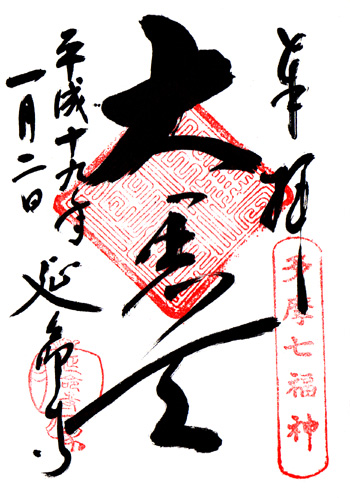 奉拝
多摩七福神
大黒天
平成十九年
一月二日
延命寺